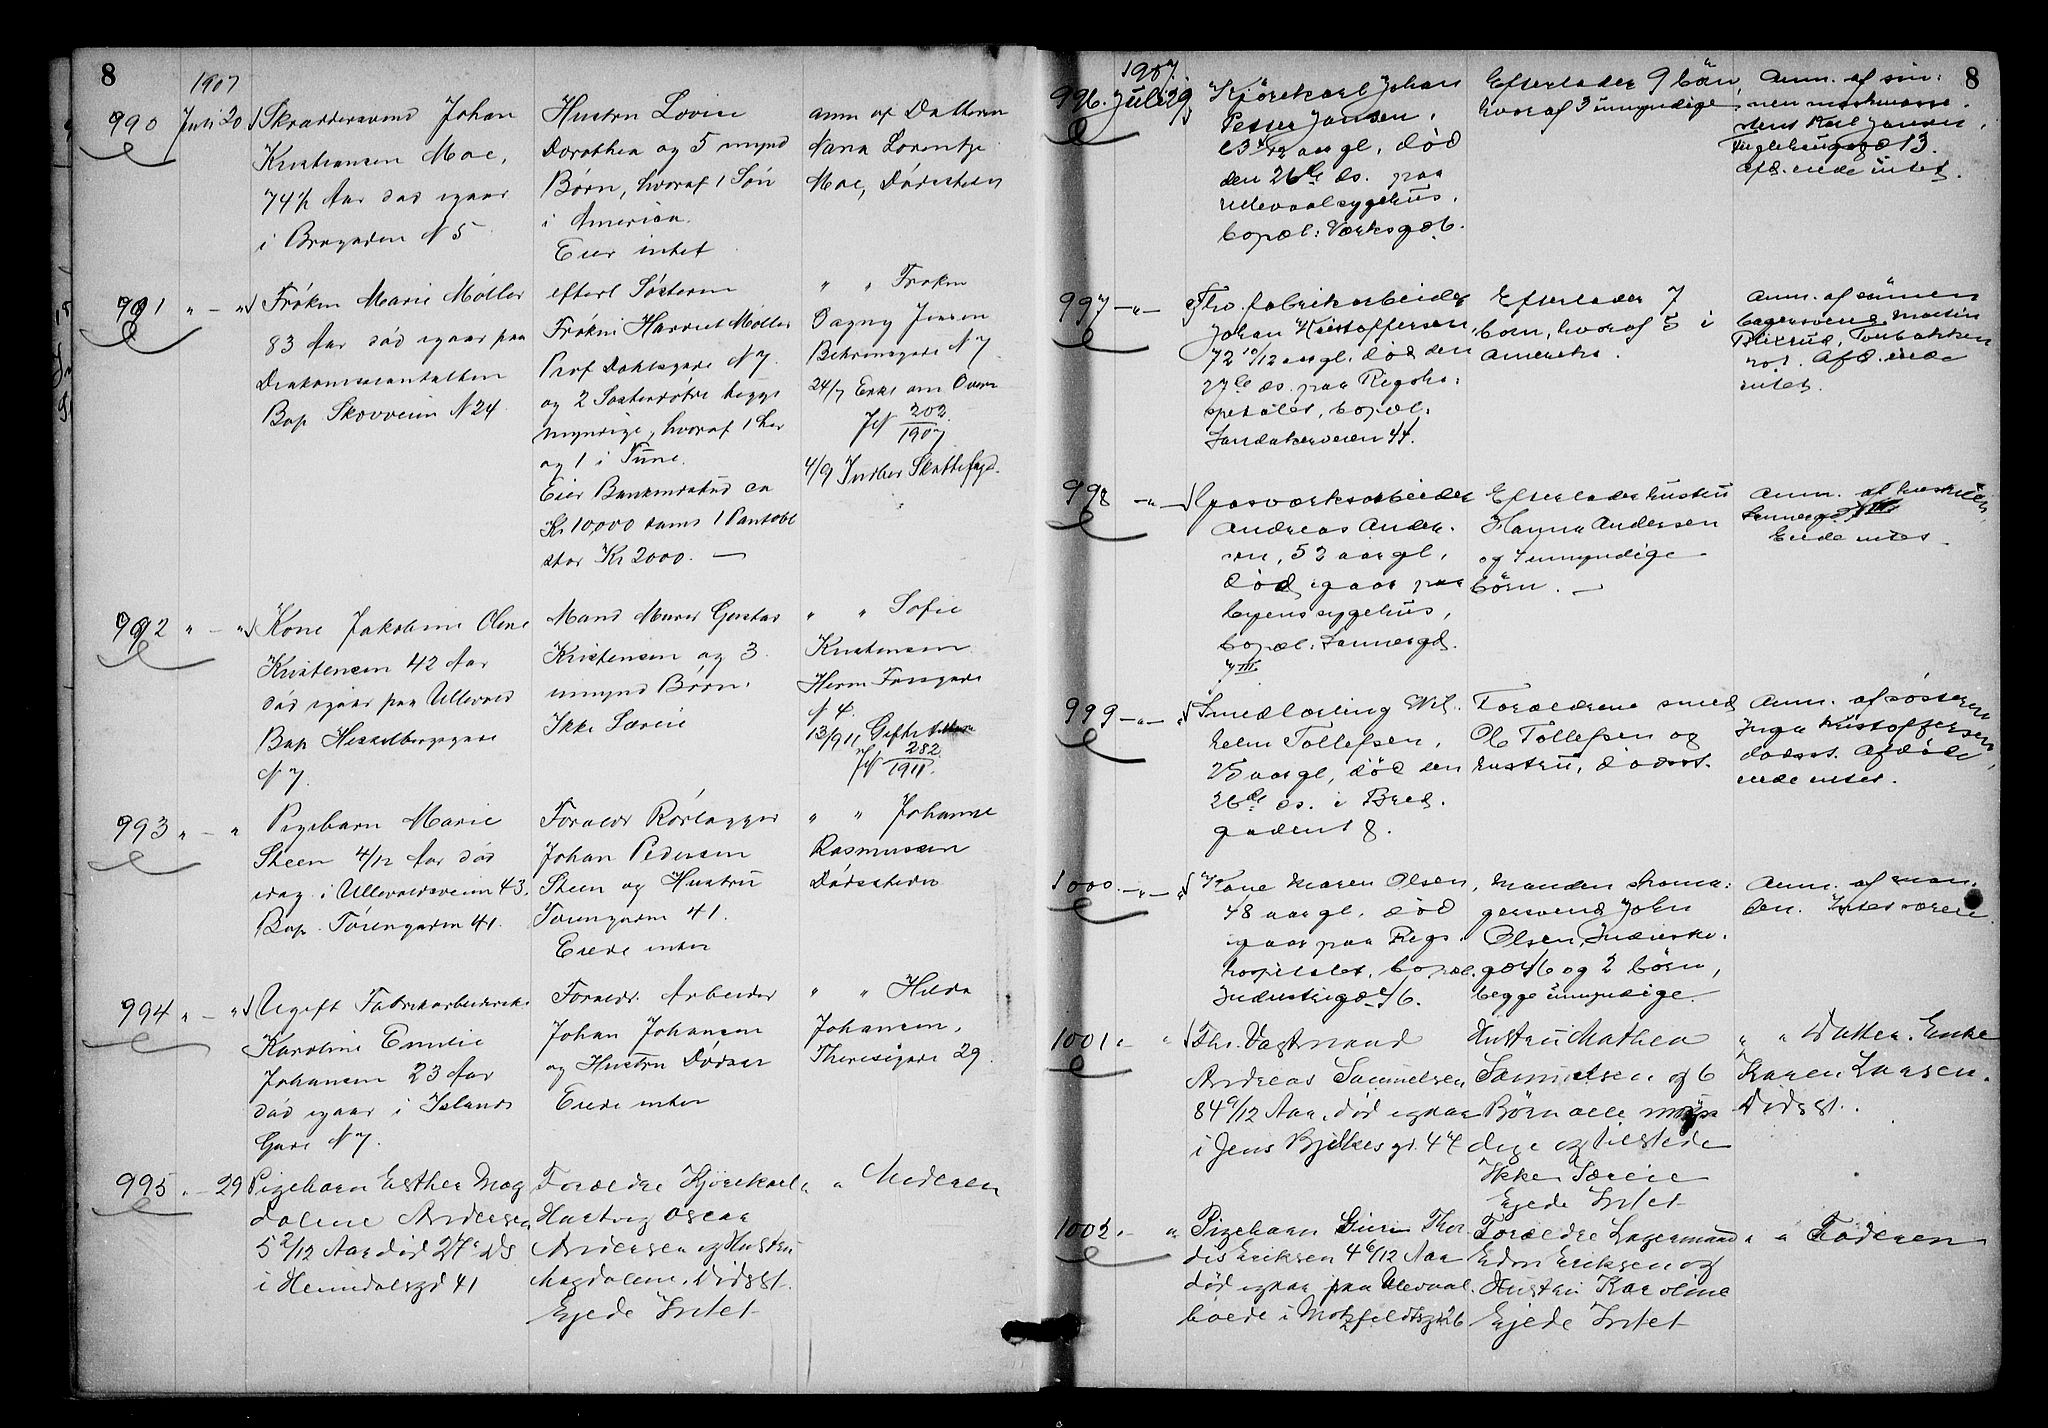 8
1907
990 Juli 20 Skræddersvend Johan
Kristiansen Moe,
74½ Aar død igaar
i Brogaden N 5
Hustru Lovise
Dorothea og 5 mynd
Børn, hvoraf 1 Søn
i Amerika.
Eier intet
anm af Datteren
Anna Lorentze
Moe, Dødsstedet
991 " - " Frøken Marie Møller
83 Aar død igaar paa
Diakonissanstalten
Bop Skovveien N 24
efterl Søsteren
Frøken Harriet Møller
Prof Dahlsgade N 7
og 2 Søsterdøtre begge
myndige, hvoraf 1 her
og 1 i Tune.
Eier Bankindskud ca
Kr 10,000 samt 1 Pantobl
stor Kr 2000. —
" " Frøken
Dagny Jensen
Behrensgade N 7
24/7
Jf 202/1907
4/9 Indber Skattefogd.
992 " - " Kone Jakobine Oline
Kristensen 42 Aar
død igaar paa Ullevold
Bop Hesselbergsgade
N 7.
Mand Murer Gustav
Kristensen og 3
umynd Børn.
Ikke Særeie
" " Sofie
Kristensen
Herm Fossgade
N 4.
13/9 11 Gifte
Jf 282/1911.
993 " - " Pigebarn Marie
Steen 4/12 Aar død
idag i Ullevoldsveien 43.
Bop. Torvengaden 41.
Foræld Rørlægger
Johan Pedersen
Steen og Hustru
Torvengaden 41.
Eiede intet
" " Johanne
Rasmussen
Dødsstedet
994 " - " Ugift Fabrikarbeiderske
Karoline Emilie
Johansen 23 Aar
død igaar i Islands
Gade N 7.
Forældr. Arbeider
Johan Johansen
og Hustru Dødsst
Eiede intet
" " Hilda
Johansen,
Theresegade 29.
995 " - 29 Pigebarn Esther Mag
dalene Andersen
5 2/12 Aar død 27e ds
i Heimdalsgd 41
Forældre Kjørekarl
Hartvig Oscar
Andersen og Hustru
Magdalene, Dødsst.
Ejede Intet
" " Moderen
8
1907.
996. Juli 29 Kjørekarl Johan
Petter Jansen,
aar gl. død
den 26de ds. paa
Ullevaal sygehus,
bopæl: Værksgd. 6.
Efterlader 9 børn,
hvoraf 3 umyndige
Anm. af søn:
nen
Karl Jansen,
13.
Afd. eiede intet.
997 - " - Fhv. fabrikarbeider
Johan Kristoffersen,
72 10/12 aar gl. død den
27de ds. paa Rigsho:
spitalet, bopæl:
Sandakerveien 44.
Efterlader 7
børn, hvoraf 5 i
Amerika.
Anm. af sønnen
bagersvend Martin
Blixrud, Torvbakken
no 1. Afd. eiede
intet.
998 - " - Gasværksarbeider
Andreas Ander.
sen, 52 aar gl,
død igaar paa
byens sygehus,
bopæl: Sannergd.
7 III.
Efterlader hustru
Hanna Andersen
og 4 umyndige
børn. —
Anm. af
Eiede intet.
999 - " - Smedlærling Wil.
helm Tollefsen,
25 aar gl, død den
26de ds. i Bred.
gaden 18.
Forældrene smed
Ole Tollefsen og
hustru, dødsst.
Anm. af søsteren
Inga Kristoffersen,
dødsst. Afdøde
eiede intet.
1000. - " - Kone Maren Olsen,
48 aar gl, død
igaar paa Rigs.
hospitalet, bopæl.
Industrigd 6.
Manden
gersvend John
Olsen, Industri.
gd 6 og 2 børn,
begge umyndige.
Anm. af man.
den. Intet særeie.
1001 " " Fhv. Vagtmand
Andreas Samuelsen
84 9/12 Aar, død igaar
i Jens Bjelkes gd. 47
Hustru Mathea
Samuelsen og 6
Børn alle myn
dige og tilstede
Ikke Særeie
Ejede Intet
" " Datter. Enke
Karen Larsen.
Dødsst.
1002. " Pigebarn Thor
dis Eriksen 4 6/12 Aar
død igaar paa Ulevaal.
boede i Motzfeldtsgd 26
Forældre Lagermand
Edm Eriksen og
Hustru Karoline
Ejede Intet
" " Faderen